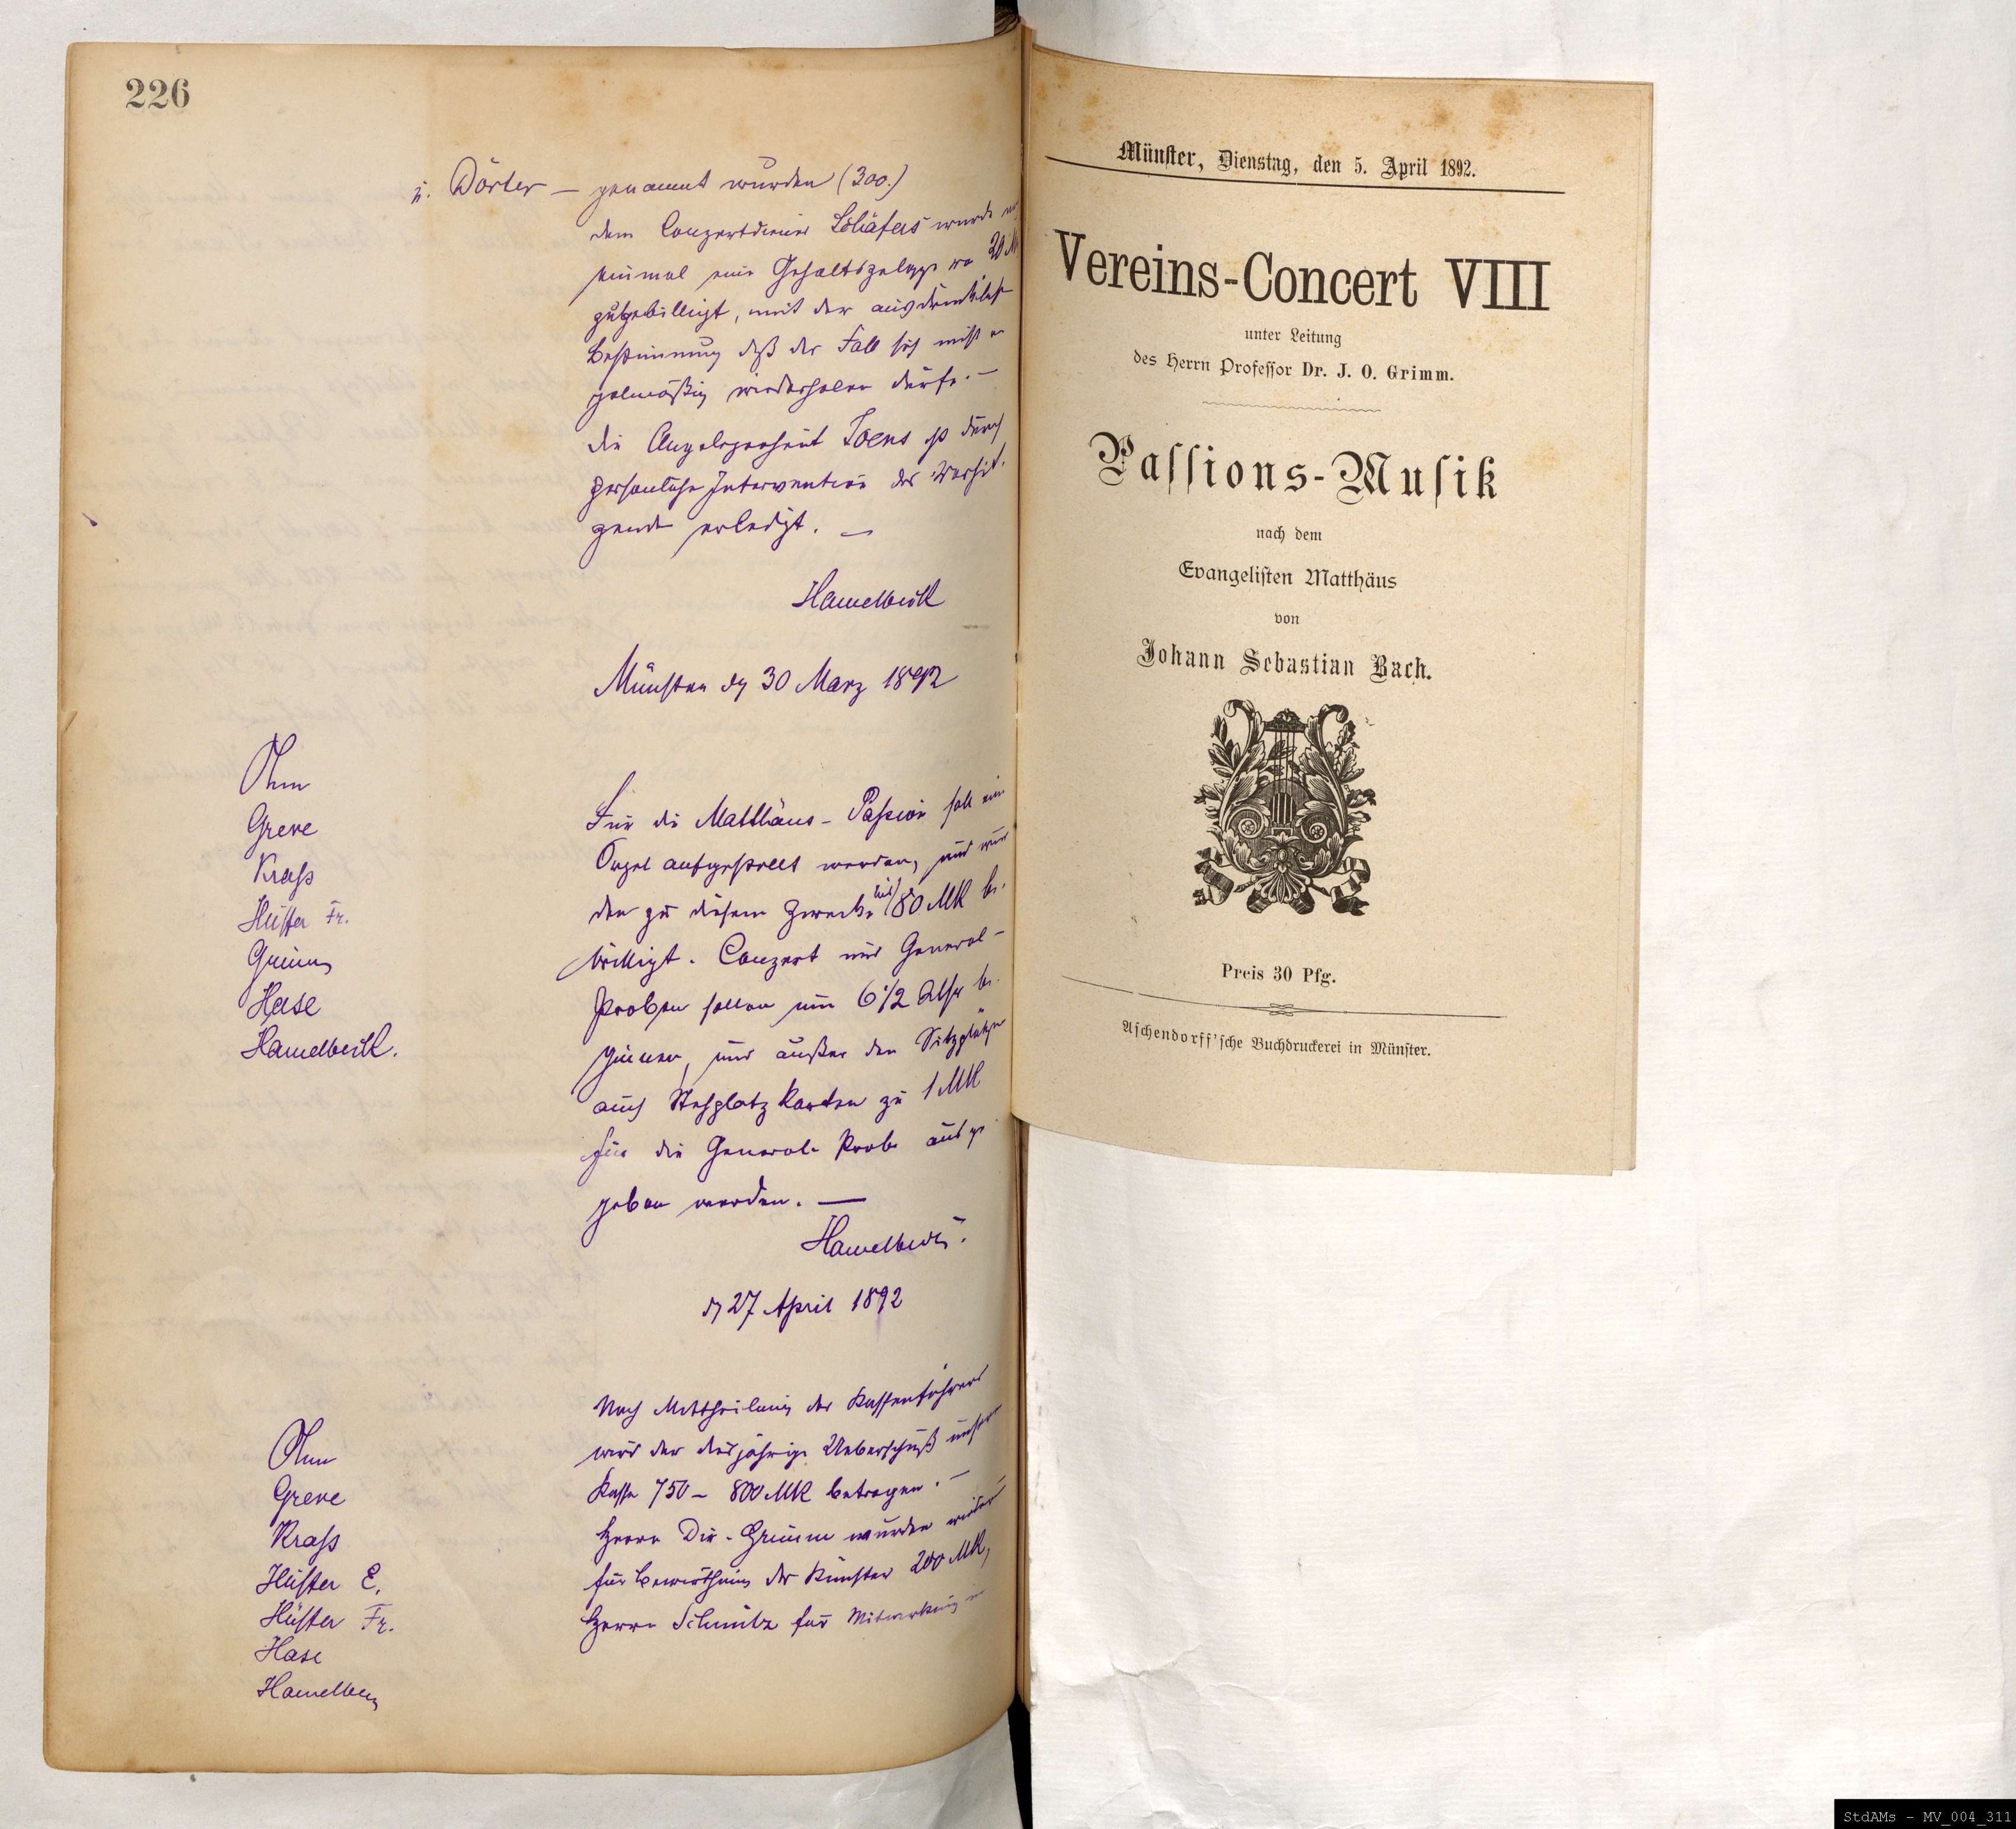 226
u. Dörter — genannt wurden (300.)
dem Conzertdiener Schäfers wurde
einmal eine Gehaltszulage von 20 M
zugebilligt, mit der ausdrücklich
Bestimmung daß der Fall sich nicht re
gelmäßig wiederholen dürfe. —
die Angelegenheit Toens ist durch
persönliche Intervention des Vorsit
zende erledigt. —
Hamelbeck
Münster dn 30 März 1892
Ohm
Greve
Krass
Hüffer Fr.
Grimm
Hase
Hamelbeck.
Für die Matthäus-Passion soll eine
Orgel aufgestellt werden, und wur
den zu diesem Zwecke bis 80 MK be-
willigt. Conzert und General-
Proben sollen um 6 1/2 Uhr be-
ginnen, und außer den Sitzplätzen
auch Stehplatzkarten zu 1 MK
für die General-Probe ausge
geben werden. —
Hamelbeck.
dn 27 April 1892
Ohm
Greve
Krass
Hüffer E.
Hüffer Fr.
Hase
Hamelbeck
Nach Mittheilung des Kassenführers
wird der diesjährige Ueberschuß unserer
Kasse 750 – 800 MK betragen. —
Herrn Dir. Grimm wurden wieder
für Bewirthung der Künstler 200 MK,
Herrn Schmitz für Mitwirkung in
Münster, Dienstag, den 5. April 1892.
Vereins-Concert VIII
unter Leitung
des Herrn Professor Dr. J. O. Grimm.
Passions-Musik
nach dem
Evangelisten Matthäus
von
Johann Sebastian Bach.
Preis 30 Pfg.
Aschendorff'sche Buchdruckerei in Münster.
StdAMs - MV_004_311